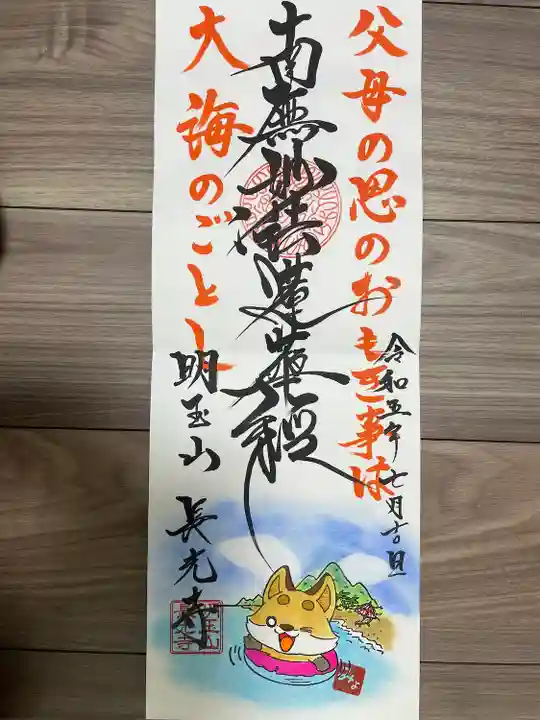 父母の恩のおもき事は
大海のごとし
南無妙法蓮華経
令和五年七月吉日
明玉山
長光寺